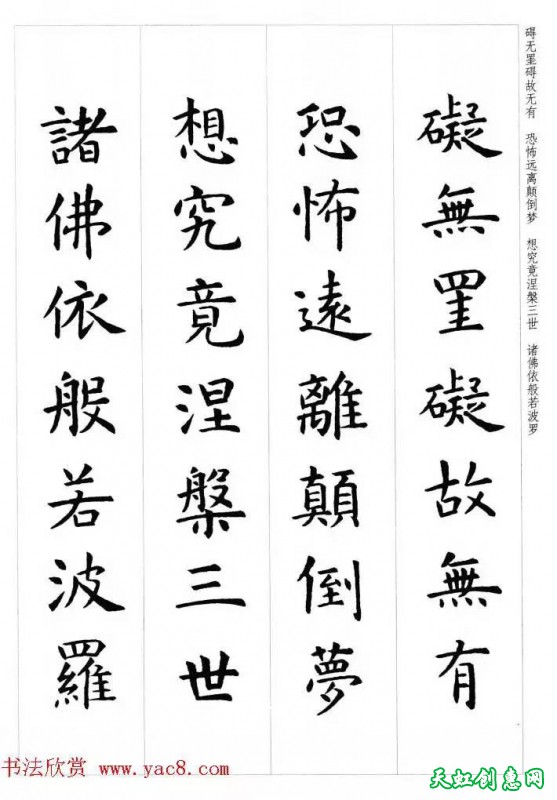 礙無罣礙故無有
恐怖遠離顛倒夢
想究竟涅槃三世
諸佛依般若波羅
碍无罣碍故无有 恐怖远离颠倒梦 想究竟涅槃三世 诸佛依般若波罗
书法欣赏 www.yac8.com
天虹创意网